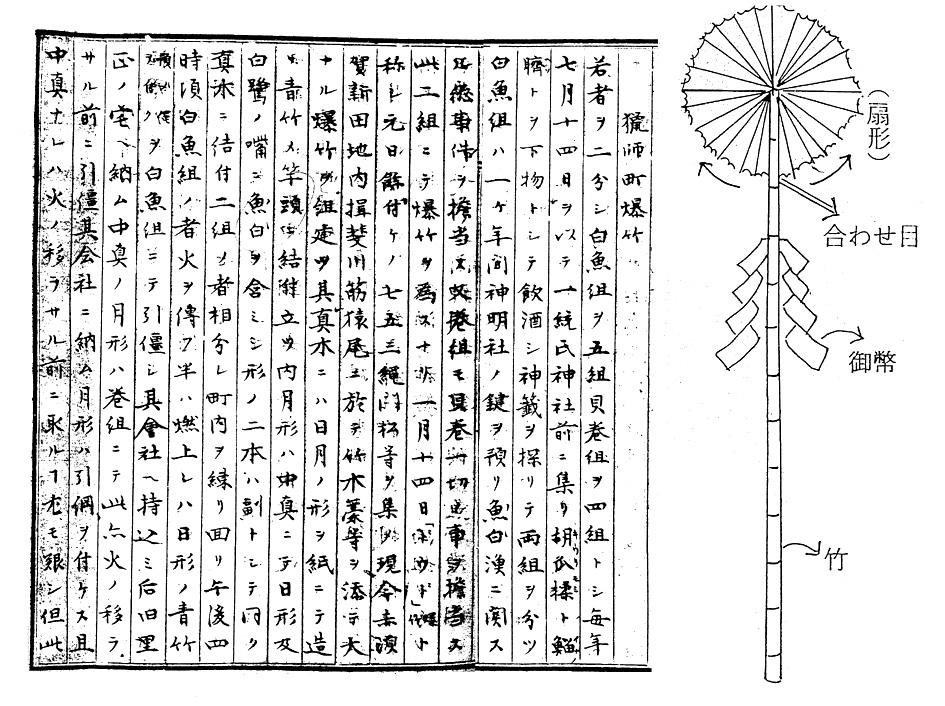 猟師町爆竹
若者ヲ二分シ白魚組ヲ五組貝巻組ヲ四組トシ毎年
七月十四日ヲ以テ一統氏神社前ニ集リ胡瓜揉ト鯔
臍トヲ下物トシテ飲酒シ神籤ヲ探リテ両組ヲ分ツ
白魚組ハ一ケ年間神明社ノ鍵ヲ預リ魚白漁ニ関ス
総事件ヲ擔当 巻組モ貝巻一切 事ヲ擔当ス
此二組ニテ爆竹ヲ為ス 一月十四日 ト
称シ元日餝付ケノ七五三縄門松等ヲ集メ現今
賀新田地内揖斐川筋猿尾ニ於テ竹木藁等ヲ添テ大
ナル爆竹ヲ組建ツ其真木ニハ日月ノ形ヲ紙ニテ造
リ青竹ノ竿頭 結 立ツ内月形ハ中真ニテ日形及
白鷺ノ嘴ニ魚白ヲ含ミシ形ノ二本ハ副トシテ同ク
真木ニ結付二組ノ者相分レ町内ヲ練リ回リ午後四
時頃白魚組ノ者火ヲ傳フ半ハ燃上レハ日形ノ青竹
ヲ白魚組ニテ引僵シ其會社へ持込ミ后旧里
正ノ宅へ納ム中真ノ月形ハ巻組ニテ此亦火ノ移ラ
サル前ニ引僵其会社ニ納ム月形ハ引綱ヲ付ケス且
中真ナレハ火ノ移ラサル前ニ取ルヿ尤モ艱シ但此
(扇形)
合わせ目
御幣
竹